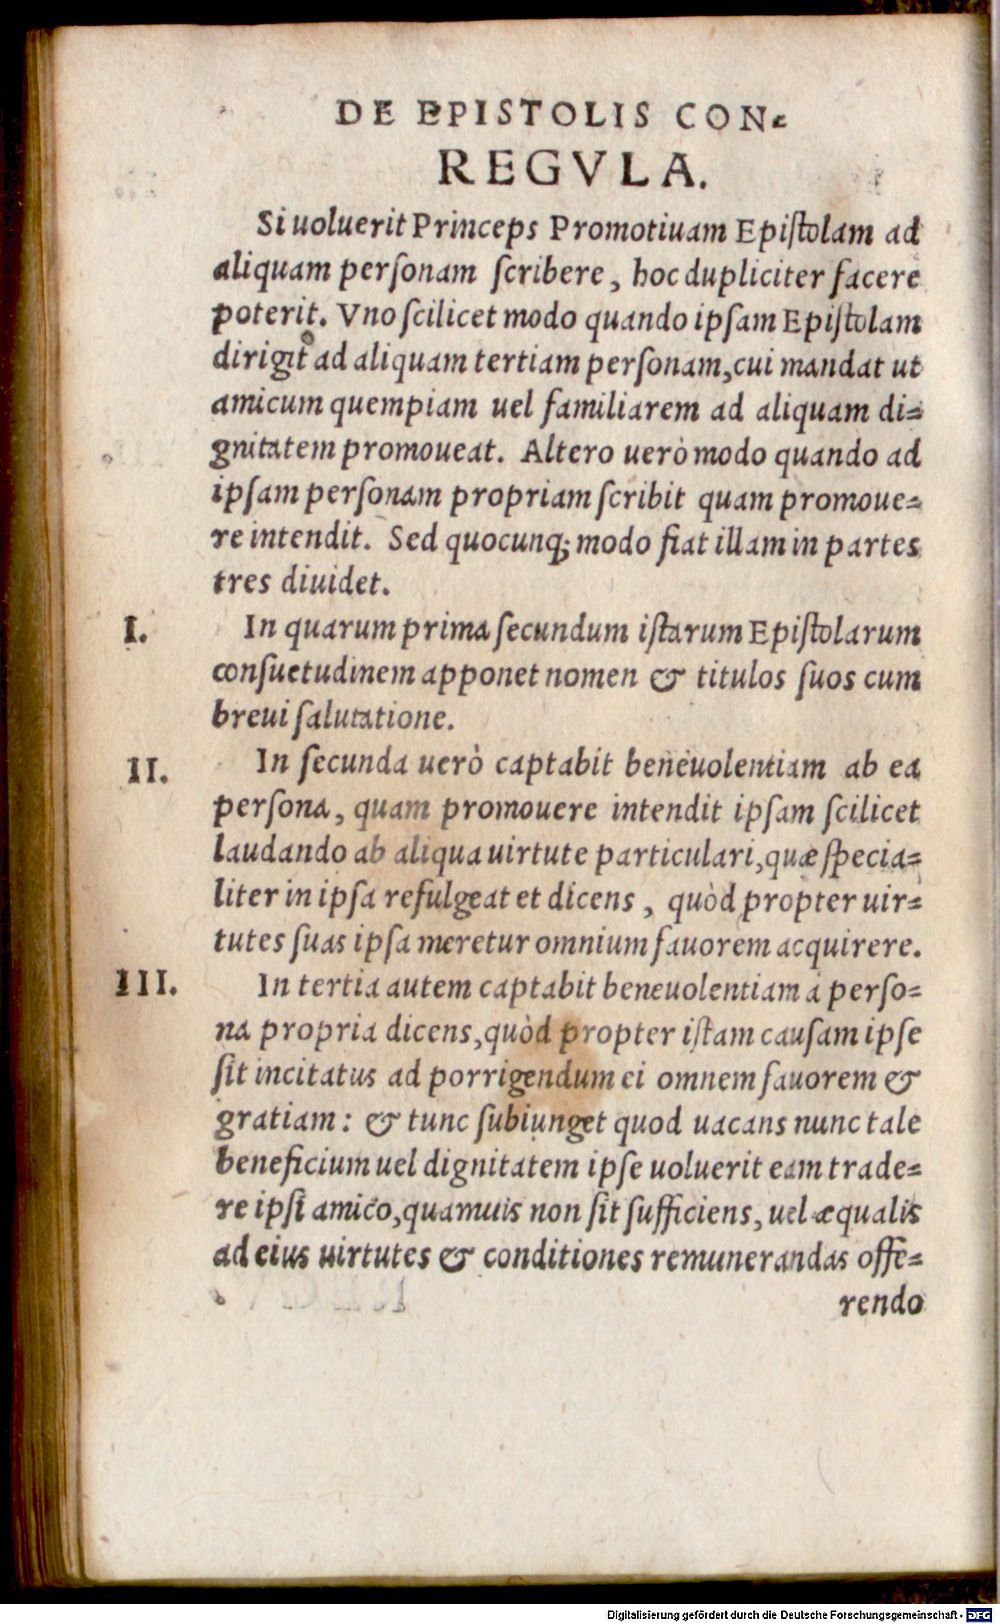 DE EPISTOLIS CON-
REGVLA.
Si uoluerit Princeps Promotiuam Epiſtolam ad
aliquam perſonam ſcribere, hoc dupliciter facere
poterit. Vno ſcilicet modo quando ipſam Epiſtolam
dirigit ad aliquam tertiam perſonam, cui mandat ut
amicum quempiam uel familiarem ad aliquam di-
gnitatem promoueat. Altero uerò modo quando ad
ipſam perſonam propriam ſcribit quam promoue-
re intendit. Sed quocunq; modo fiat illam in partes
tres diuidet.
I. In quarum prima ſecundum iſtarum Epiſtolarum
conſuetudinem apponet nomen & titulos ſuos cum
breui ſalutatione.
II. In ſecunda uerò captabit beneuolentiam ab ea
perſona, quam promouere intendit ipſam ſcilicet
laudando ab aliqua uirtute particulari, quæ ſpecia-
liter in ipſa refulgeat et dicens, quòd propter uir-
tutes ſuas ipſa meretur omnium fauorem acquirere.
III. In tertia autem captabit beneuolentiam à perſo-
na propria dicens, quòd propter iſtam cauſam ipſe
ſit incitatus ad porrigendum ei omnem fauorem &
gratiam: & tunc ſubiunget quod uacans nunc tale
beneficium uel dignitatem ipſe uoluerit eam trade-
re ipſi amico, quamuis non ſit ſufficiens, uel æqualis
ad eius uirtutes & conditiones remunerandas offe-
rendo
Digitalisierung gefördert durch die Deutsche Forschungsgemeinschaft - DFG